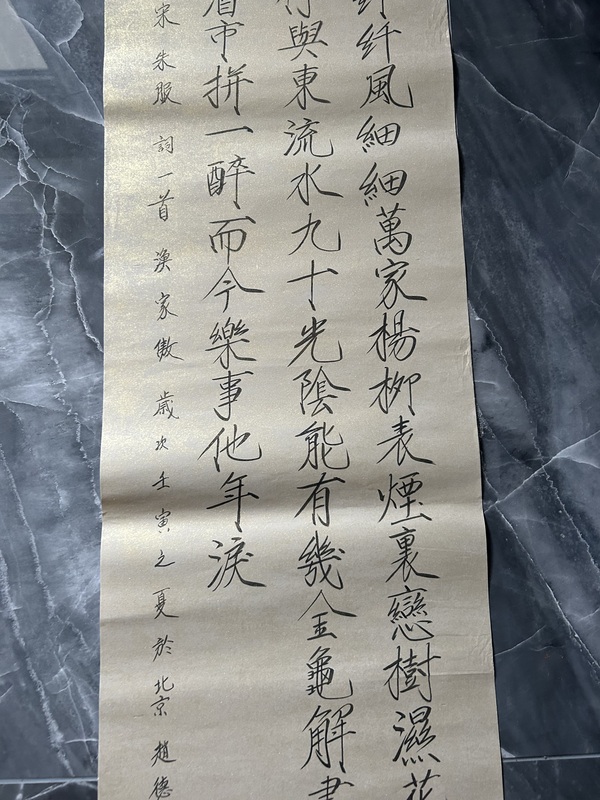 纤風細細萬家楊柳表煙裏戀樹濕花
與東流水九十光陰能有幾金龜解
市拼一醉而今樂事他年淚
宋朱服詞一首漁家傲歲次壬寅之夏於北京趙德